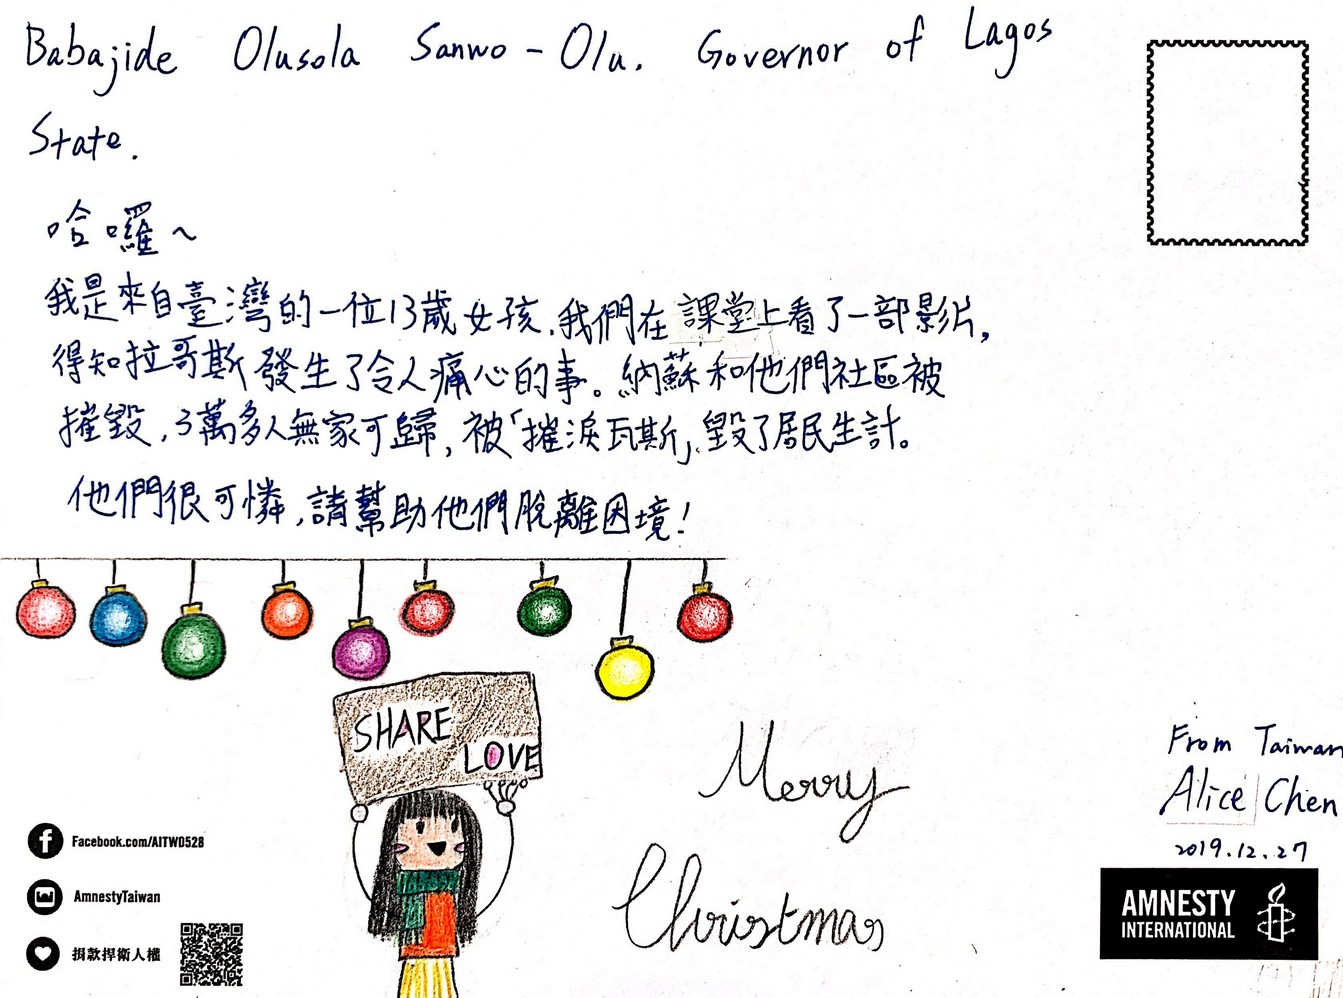 Babajide Olusola Sanwo-Olu. Governor of Lagos
State.
哈囉~
我是來自臺灣的一位13歲女孩,我們在課堂上看了一部影片,
得知拉哥斯發生了令人痛心的事。納蘇和他們社區被
摧毀,3萬多人無家可歸,被「摧淚瓦斯」毀了居民生計。
他們很可憐,請幫助他們脫離困境!
SHARE
LOVE
Merry
Christmas
From Taiwan
Alice Chen
2019.12.27
Facebook.com/AITW0528
AmnestyTaiwan
捐款捍衛人權
AMNESTY
INTERNATIONAL